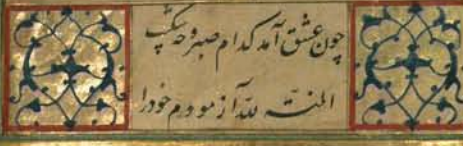 چون عشق آمد کدام صبر و چه شکیب
المنة لله آزمودم خود را